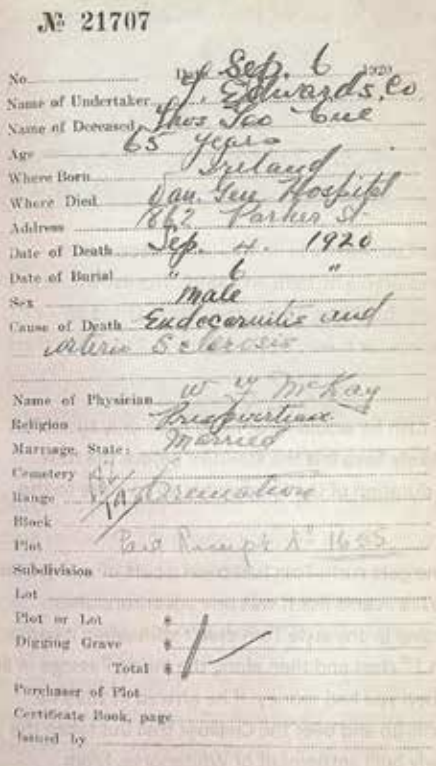 No 21707
No. Date Sep. 6 1920
Name of Undertaker Edwards Co
Name of Deceased Thos
Age 65 years
Where Born Ireland
Where Died Van. Gen Hospital
Address 1862 Parker St
Date of Death Sep. 4. 1920
Date of Burial " 6 "
Sex male
Cause of Death Endocarditis and
arterio Sclerosis
Name of Physician W Y McKay
Religion
Marriage, State: Married
Cemetery
Range Cremation
Block
Plot Paid 1655
Subdivision
Lot
Plot or Lot $
Digging Grave $
Total $
Purchaser of Plot
Certificate Book, page
Issued by